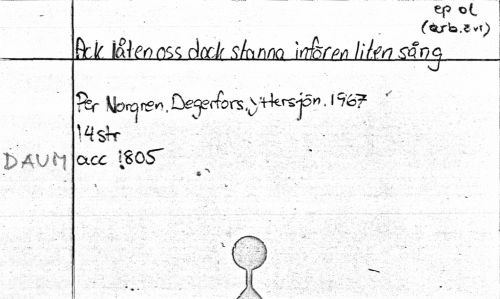 ep ol
(arb.tvi)
Ack låten oss dock stanna inför en liten sång
Per Norgren, Degerfors, Yttersjön. 1967
14 str
DAUM acc 1805